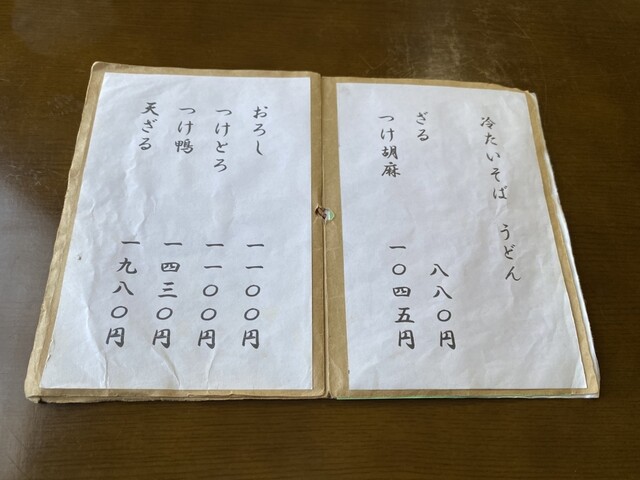 冷たいそば　うどん
ざる　八八〇円
つけ胡麻　一〇四五円
おろし　一一〇〇円
つけとろ　一一〇〇円
つけ鴨　一四三〇円
天ざる　一九八〇円